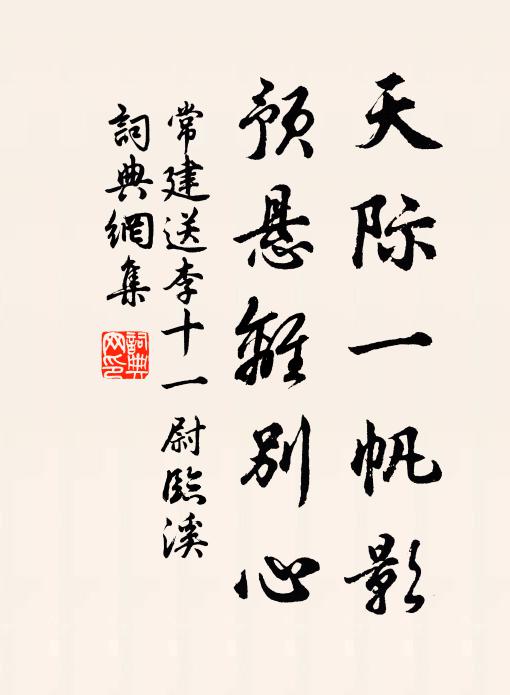 天际一帆影
预悬離别心
常建送李十一尉臨溪
詞典網集
詞典網印